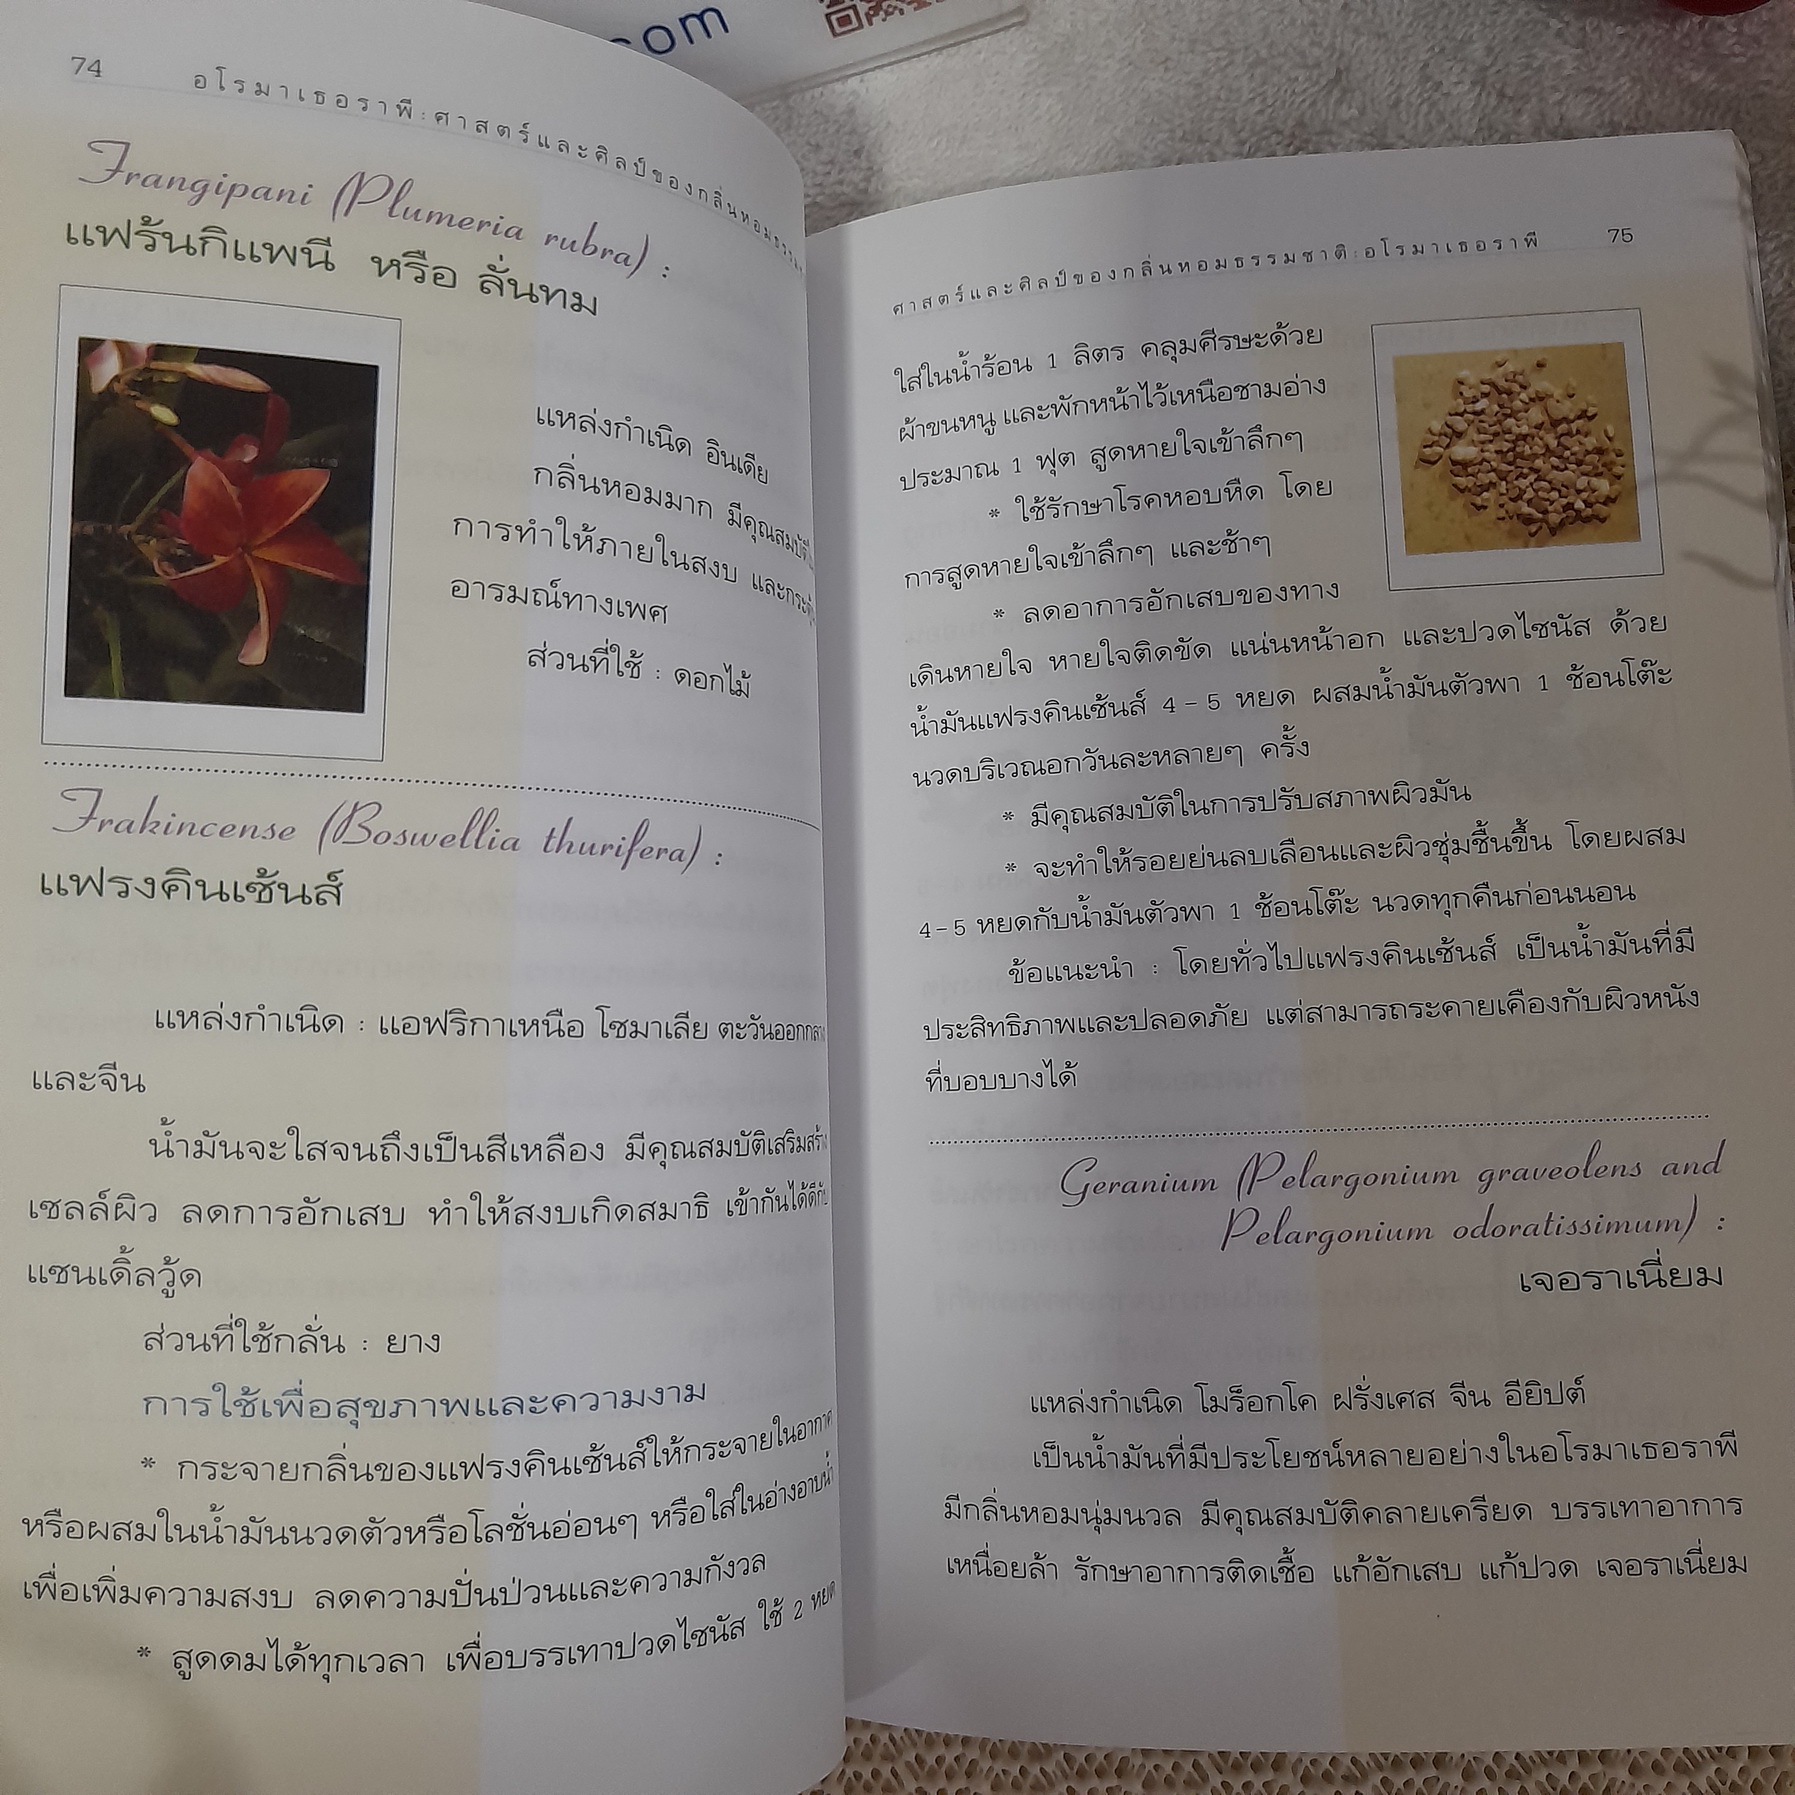 .com
74
อโรมาเธอราพี:ศาสตร์และศิลป์ของกลิ่นหอมธรรม
Frangipani (Plumeria rubra) :
แฟร้นกิแพนี หรือ ลั่นทม
แหล่งกำเนิด อินเดีย
กลิ่นหอมมาก มีคุณสมบัติ
การทำให้ภายในสงบ และกระตุ้น
อารมณ์ทางเพศ
ส่วนที่ใช้ : ดอกไม้
Frakincense (Boswellia thurifera) :
แฟรงคินเซ้นส์
แหล่งกำเนิด : แอฟริกาเหนือ โซมาเลีย ตะวันออกกลาง
และจีน
น้ำมันจะใสจนถึงเป็นสีเหลือง มีคุณสมบัติเสริมสร้าง
เซลล์ผิว ลดการอักเสบ ทำให้สงบเกิดสมาธิ เข้ากันได้ดีกับ
แซนเดิ้ลวู้ด
ส่วนที่ใช้กลั่น : ยาง
การใช้เพื่อสุขภาพและความงาม
* กระจายกลิ่นของแฟรงคินเซ้นส์ให้กระจายในอากาศ
หรือผสมในน้ำมันนวดตัวหรือโลชั่นอ่อนๆ หรือใส่ในอ่างอาบน้ำ
เพื่อเพิ่มความสงบ ลดความปั่นป่วนและความกังวล
* สูดดมได้ทุกเวลา เพื่อบรรเทาปวดไซนัส ใช้ 2 หยด
ศาสตร์และศิลป์ของกลิ่นหอมธรรมชาติ:อโรมาเธอราพี
75
ใส่ในน้ำร้อน 1 ลิตร คลุมศีรษะด้วย
ผ้าขนหนู และพักหน้าไว้เหนือชามอ่าง
ประมาณ 1 ฟุต สูดหายใจเข้าลึกๆ
* ใช้รักษาโรคหอบหืด โดย
การสูดหายใจเข้าลึกๆ และช้าๆ
* ลดอาการอักเสบของทาง
เดินหายใจ หายใจติดขัด แน่นหน้าอก และปวดไซนัส ด้วย
น้ำมันแฟรงคินเซ้นส์ 4 - 5 หยด ผสมน้ำมันตัวพา 1 ช้อนโต๊ะ
นวดบริเวณอกวันละหลายๆ ครั้ง
* มีคุณสมบัติในการปรับสภาพผิวมัน
* จะทำให้รอยย่นลบเลือนและผิวชุ่มชื้นขึ้น โดยผสม
4-5 หยดกับน้ำมันตัวพา 1 ช้อนโต๊ะ นวดทุกคืนก่อนนอน
ข้อแนะนำ : โดยทั่วไปแฟรงคินเซ้นส์ เป็นน้ำมันที่มี
ประสิทธิภาพและปลอดภัย แต่สามารถระคายเคืองกับผิวหนัง
ที่บอบบางได้
Geranium (Pelargonium graveolens and
Pelargonium odoratissimum) :
เจอราเนี่ยม
แหล่งกำเนิด โมร็อกโค ฝรั่งเศส จีน อียิปต์
เป็นน้ำมันที่มีประโยชน์หลายอย่างในอโรมาเธอราพี
มีกลิ่นหอมนุ่มนวล มีคุณสมบัติคลายเครียด บรรเทาอาการ
เหนื่อยล้า รักษาอาการติดเชื้อ แก้อักเสบ แก้ปวด เจอราเนี่ยม